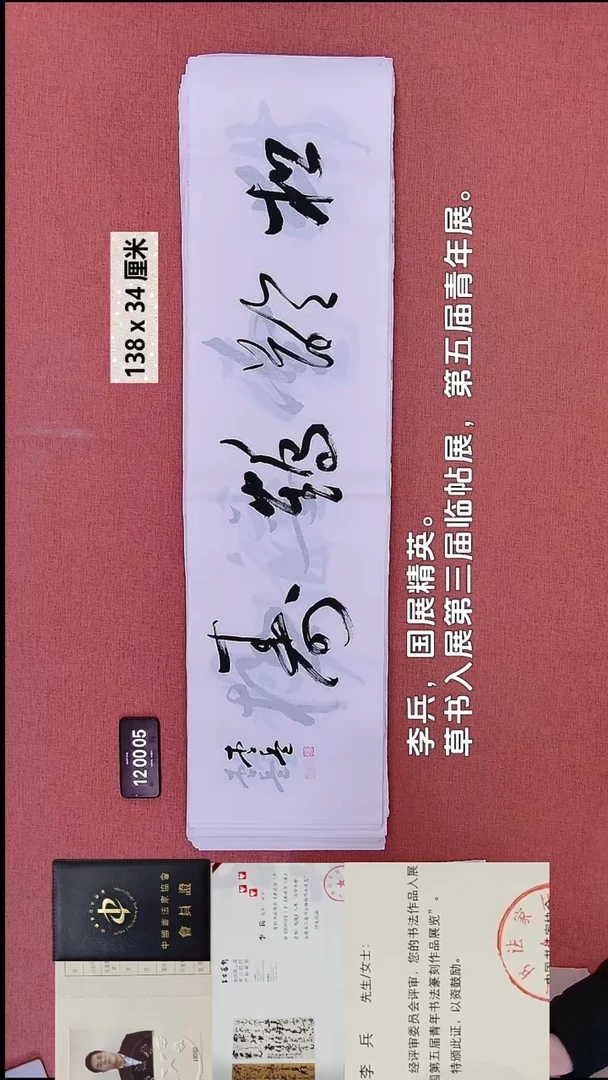 138 x 34 厘米
松龄鹤寿
李兵
120005
李兵，国展精英。
草书入展第三届临帖展，第五届青年展。
中國書法家協會
會員證
李 兵 先生/女士：
经评审委员会评审，您的书法作品入展
国第五届青年书法篆刻作品展览”。
特颁此证，以资鼓励。